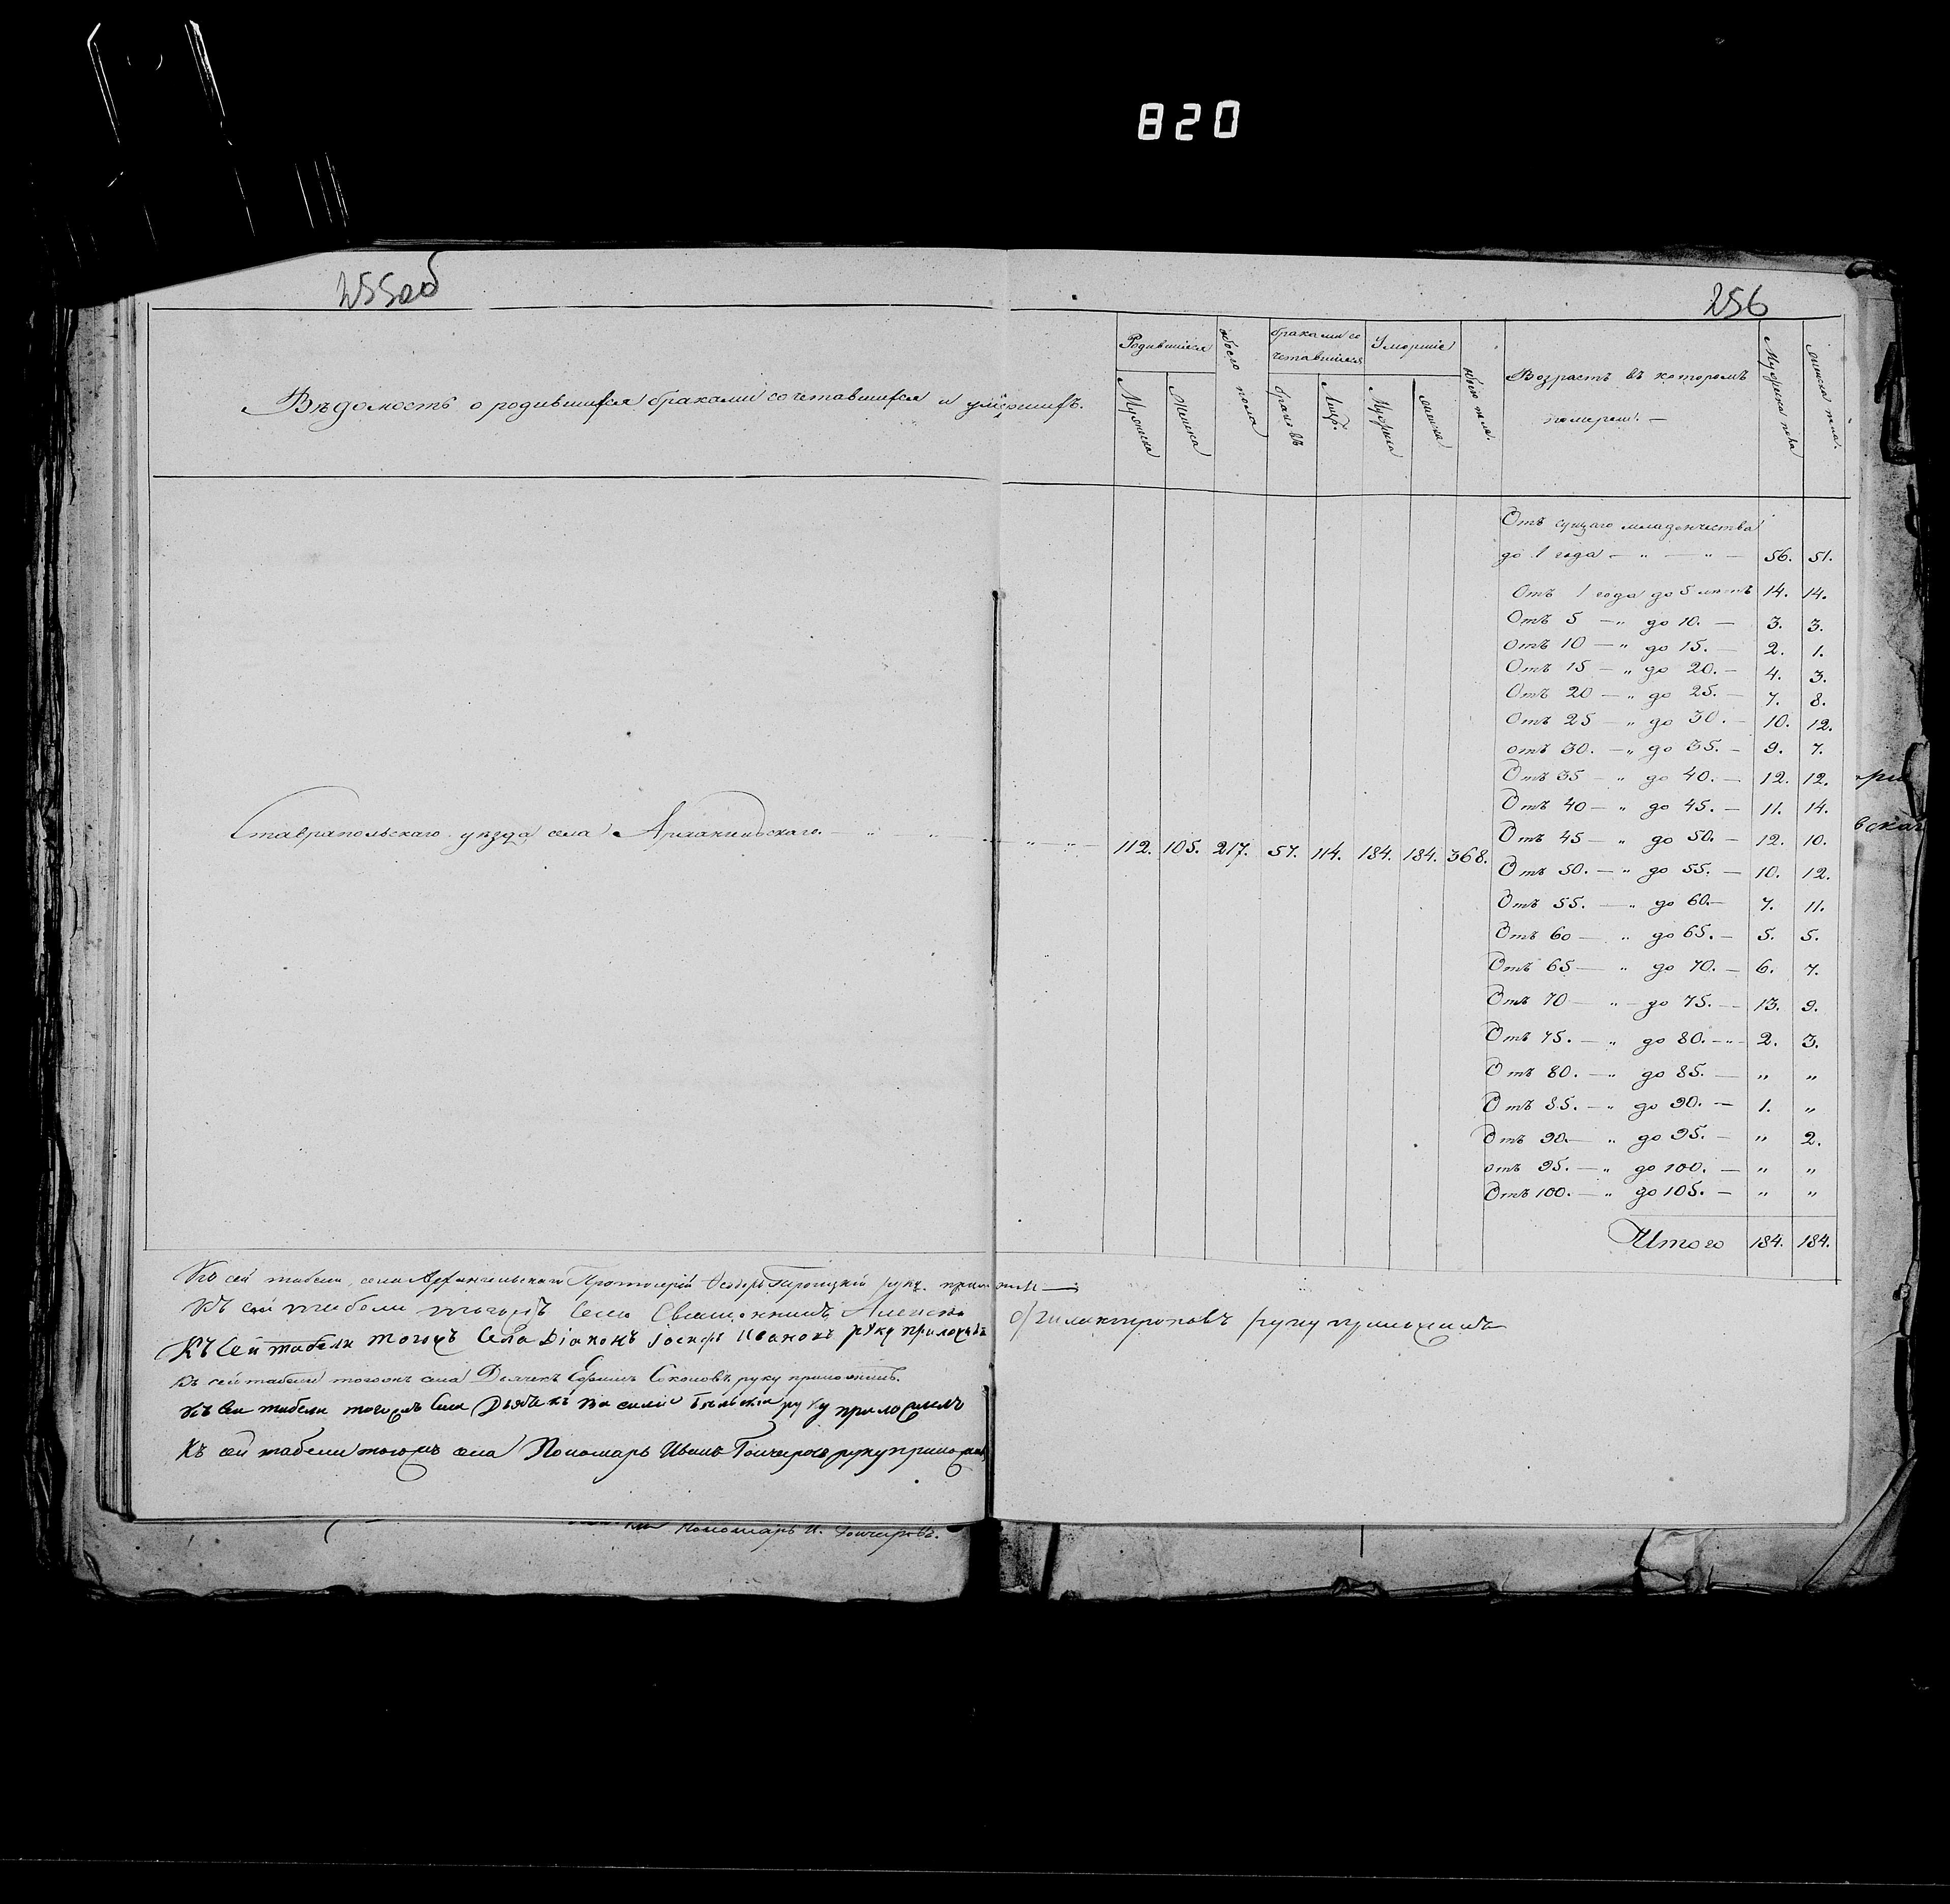 820
255 об
256
Вѣдомость о родившихся браками сочетавшихся и умершихъ.
Родившіеся
Мужеска
Женска
обоего пола
браками сочетавшіеся
браковъ
лицъ.
Умершіе
Мужеска
женска
обоего пола.
Возрастъ въ которомъ
померли. —
Мужеска пола
женска пола.
Ставрапольскаго уѣзда села Архангельскаго. — „ — „ — „ — 112. 105. 217. 57. 114. 184. 184. 368.
Отъ сущаго младенчества
до 1 года — „ — „ — 56. 51.
Отъ 1 года до 5 лѣтъ 14. 14.
Отъ 5 — „ до 10. — 3. 3.
отъ 10 — „ до 15. — 2. 1.
Отъ 15 — „ до 20. — 4. 3.
Отъ 20 — „ до 25. — 7. 8.
Отъ 25 — „ до 30. — 10. 12.
отъ 30. — „ до 35. — 9. 7.
Отъ 35 — „ до 40. — 12. 12.
Отъ 40 — „ до 45. — 11. 14.
Отъ 45 — „ до 50. — 12. 10.
Отъ 50. — „ до 55. — 10. 12.
Отъ 55. — „ до 60. — 7. 11.
Отъ 60 — „ до 65. — 5. 5.
Отъ 65 — „ до 70. — 6. 7.
Отъ 70 — „ до 75. — 13. 9.
Отъ 75. — „ до 80. — „ — 2. 3.
Отъ 80. — „ до 85. — „ „
Отъ 85. — „ до 90. — 1. „
Отъ 90. — „ до 95. — „ 2.
отъ 95. — „ до 100. — „ „
Отъ 100. — „ до 105. — „ „
Итого 184. 184.
Къ сей табели села Архангельскаго Протоіерей Ѳеодоръ руку приложилъ
Къ сей табели тогожъ села Священникъ Алексѣй Филантроповъ руку приложилъ
Къ сей табели тогожъ села Діаконъ Іосифъ Ивановъ руку приложилъ
Къ сей табели тогожъ села Дьячекъ Ефимъ Соколовъ руку приложилъ.
Къ сей табели тогожъ села Дьячекъ Василій руку приложилъ
Къ сей табели тогожъ села Пономарь Иванъ Гончаровъ руку приложилъ
Пономарь И. Гончаровъ.